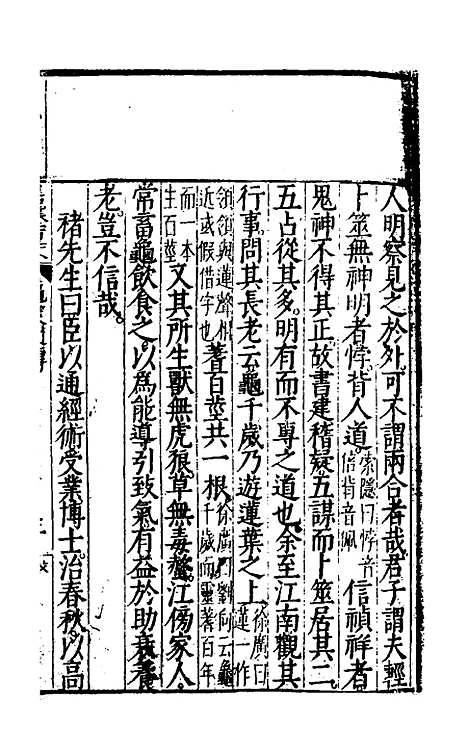 人明察見之於外可不謂兩合者哉君子謂夫輕
卜筮無神明者悖背人道索隱曰悖音倍背音佩信禎祥者
鬼神不得其正故書建稽疑五謀而卜筮居其二
五占從其多明有而不專之道也余至江南觀其
行事問其長老云龜千歲乃遊蓮葉之上徐廣曰蓮一作
領領與蓮聲相近或假借字也蓍百莖共一根徐廣曰劉向云龜千歲而靈蓍百年
而一本生百莖又其所生獸無虎狼草無毒螫江傍家人
常畜龜飲食之以為能導引致氣有益於助衰養
老豈不信哉
褚先生曰臣以通經術受業博士治春秋以高